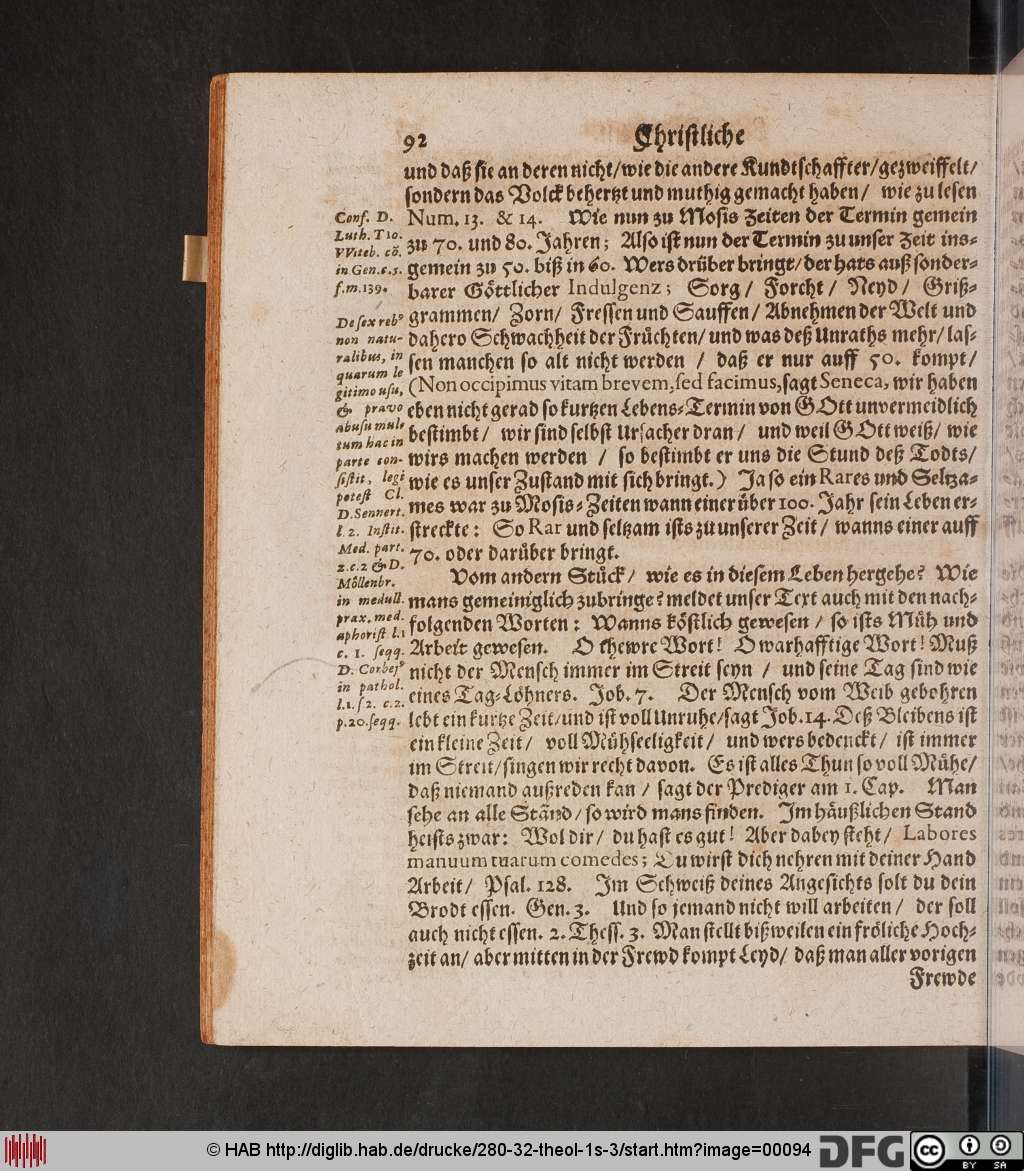 92 Christliche
und daß sie an deren nicht/wie die andere Kundtschaffter/gezweiffelt/
sondern das Volck behertzt und muthig gemacht haben/ wie zu lesen
Num. 13. & 14. Wie nun zu Mosis Zeiten der Termin gemein
zu 70. und 80. Jahren; Also ist nun der Termin zu unser Zeit ins-
gemein zu 50. biß in 60. Wers drüber bringt/der hats auß sonder-
barer Göttlicher Indulgenz; Sorg/ Forcht/ Neyd/ Griß-
grammen/ Zorn/ Fressen und Sauffen/ Abnehmen der Welt und
dahero Schwachheit der Früchten/ und was deß Unraths mehr/ las-
sen manchen so alt nicht werden / daß er nur auff 50. kompt/
(Non occipimus vitam brevem, sed facimus, sagt Seneca, wir haben
eben nicht gerad so kurtzen Lebens-Termin von GOtt unvermeidlich
bestimbt/ wir sind selbst Ursacher dran/ und weil GOtt weiß/ wie
wirs machen werden / so bestimbt er uns die Stund deß Todts/
wie es unser Zustand mit sich bringt.) Ja so ein Rares und Seltza-
mes war zu Mosis-Zeiten wann einer über 100. Jahr sein Leben er-
streckte: So Rar und seltzam ists zu unserer Zeit/ wanns einer auff
70. oder darüber bringt.
Vom andern Stück/ wie es in diesem Leben hergehe? Wie
mans gemeiniglich zubringe? meldet unser Text auch mit den nach-
folgenden Worten: Wanns köstlich gewesen/ so ists Müh und
Arbeit gewesen. O thewre Wort! O warhafftige Wort! Muß
nicht der Mensch immer im Streit seyn / und seine Tag sind wie
eines Tag-Löhners. Job. 7. Der Mensch vom Weib gebohren
lebt ein kurtze Zeit/und ist voll Unruhe/sagt Job. 14. Deß Bleibens ist
ein kleine Zeit/ voll Mühseeligkeit/ und wers bedenckt/ ist immer
im Streit/singen wir recht davon. Es ist alles Thun so voll Mühe/
daß niemand außreden kan/ sagt der Prediger am 1. Cap. Man
sehe an alle Ständ/ so wird mans finden. Im häußlichen Stand
heists zwar: Wol dir/ du hast es gut! Aber dabey steht/ Labores
manuum tuarum comedes; Du wirst dich nehren mit deiner Hand
Arbeit/ Psal. 128. Im Schweiß deines Angesichts solt du dein
Brodt essen. Gen. 3. Und so jemand nicht will arbeiten/ der soll
auch nicht essen. 2. Thess. 3. Man stellt bißweilen ein fröliche Hoch-
zeit an/ aber mitten in der Frewd kompt Leyd/ daß man aller vorigen
Frewde
Conf. D.
Luth. T 10.
VViteb. cö.
in Gen. c. 3.
f. m. 139.
De sex rebꝰ
non natu-
ralibus, in
quarum le
gitimo usu,
& pravo
abusu mul-
tum hac in
parte con-
sistit, legi
potest Cl.
D. Sennert.
l. 2. Instit.
Med. part.
2. c. 2 & D.
Möllenbr.
in medull.
prax. med.
aphorist l. 1
c. 1. seqq.
D. Corbejꝰ
in pathol.
l. 1. s 2. c. 2.
p. 20. seqq.
© HAB http://diglib.hab.de/drucke/280-32-theol-1s-3/start.htm?image=00094
DFG
cc BY SA